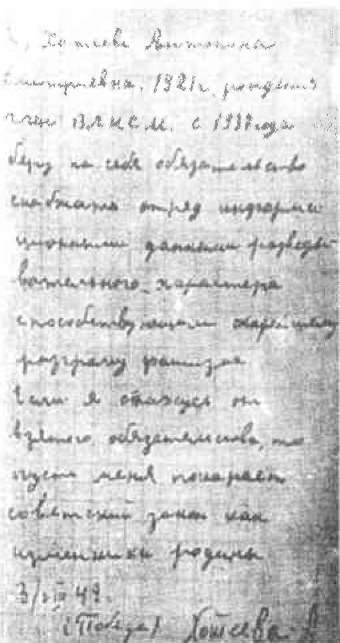 Я, Хотеева Антонина
Дмитриевна, 1921г. рождения
член ВЛКСМ. с 1937 года
беру на себя обязательство
снабжать отряд информа
ционными данными разведы
вательного характера
способствующими скорейшему
разгрому фашизма
Если я откажусь от
взятого обязательства, то
пусть меня покарает
советский закон как
изменника родины
42.
(Победа) Хотеева